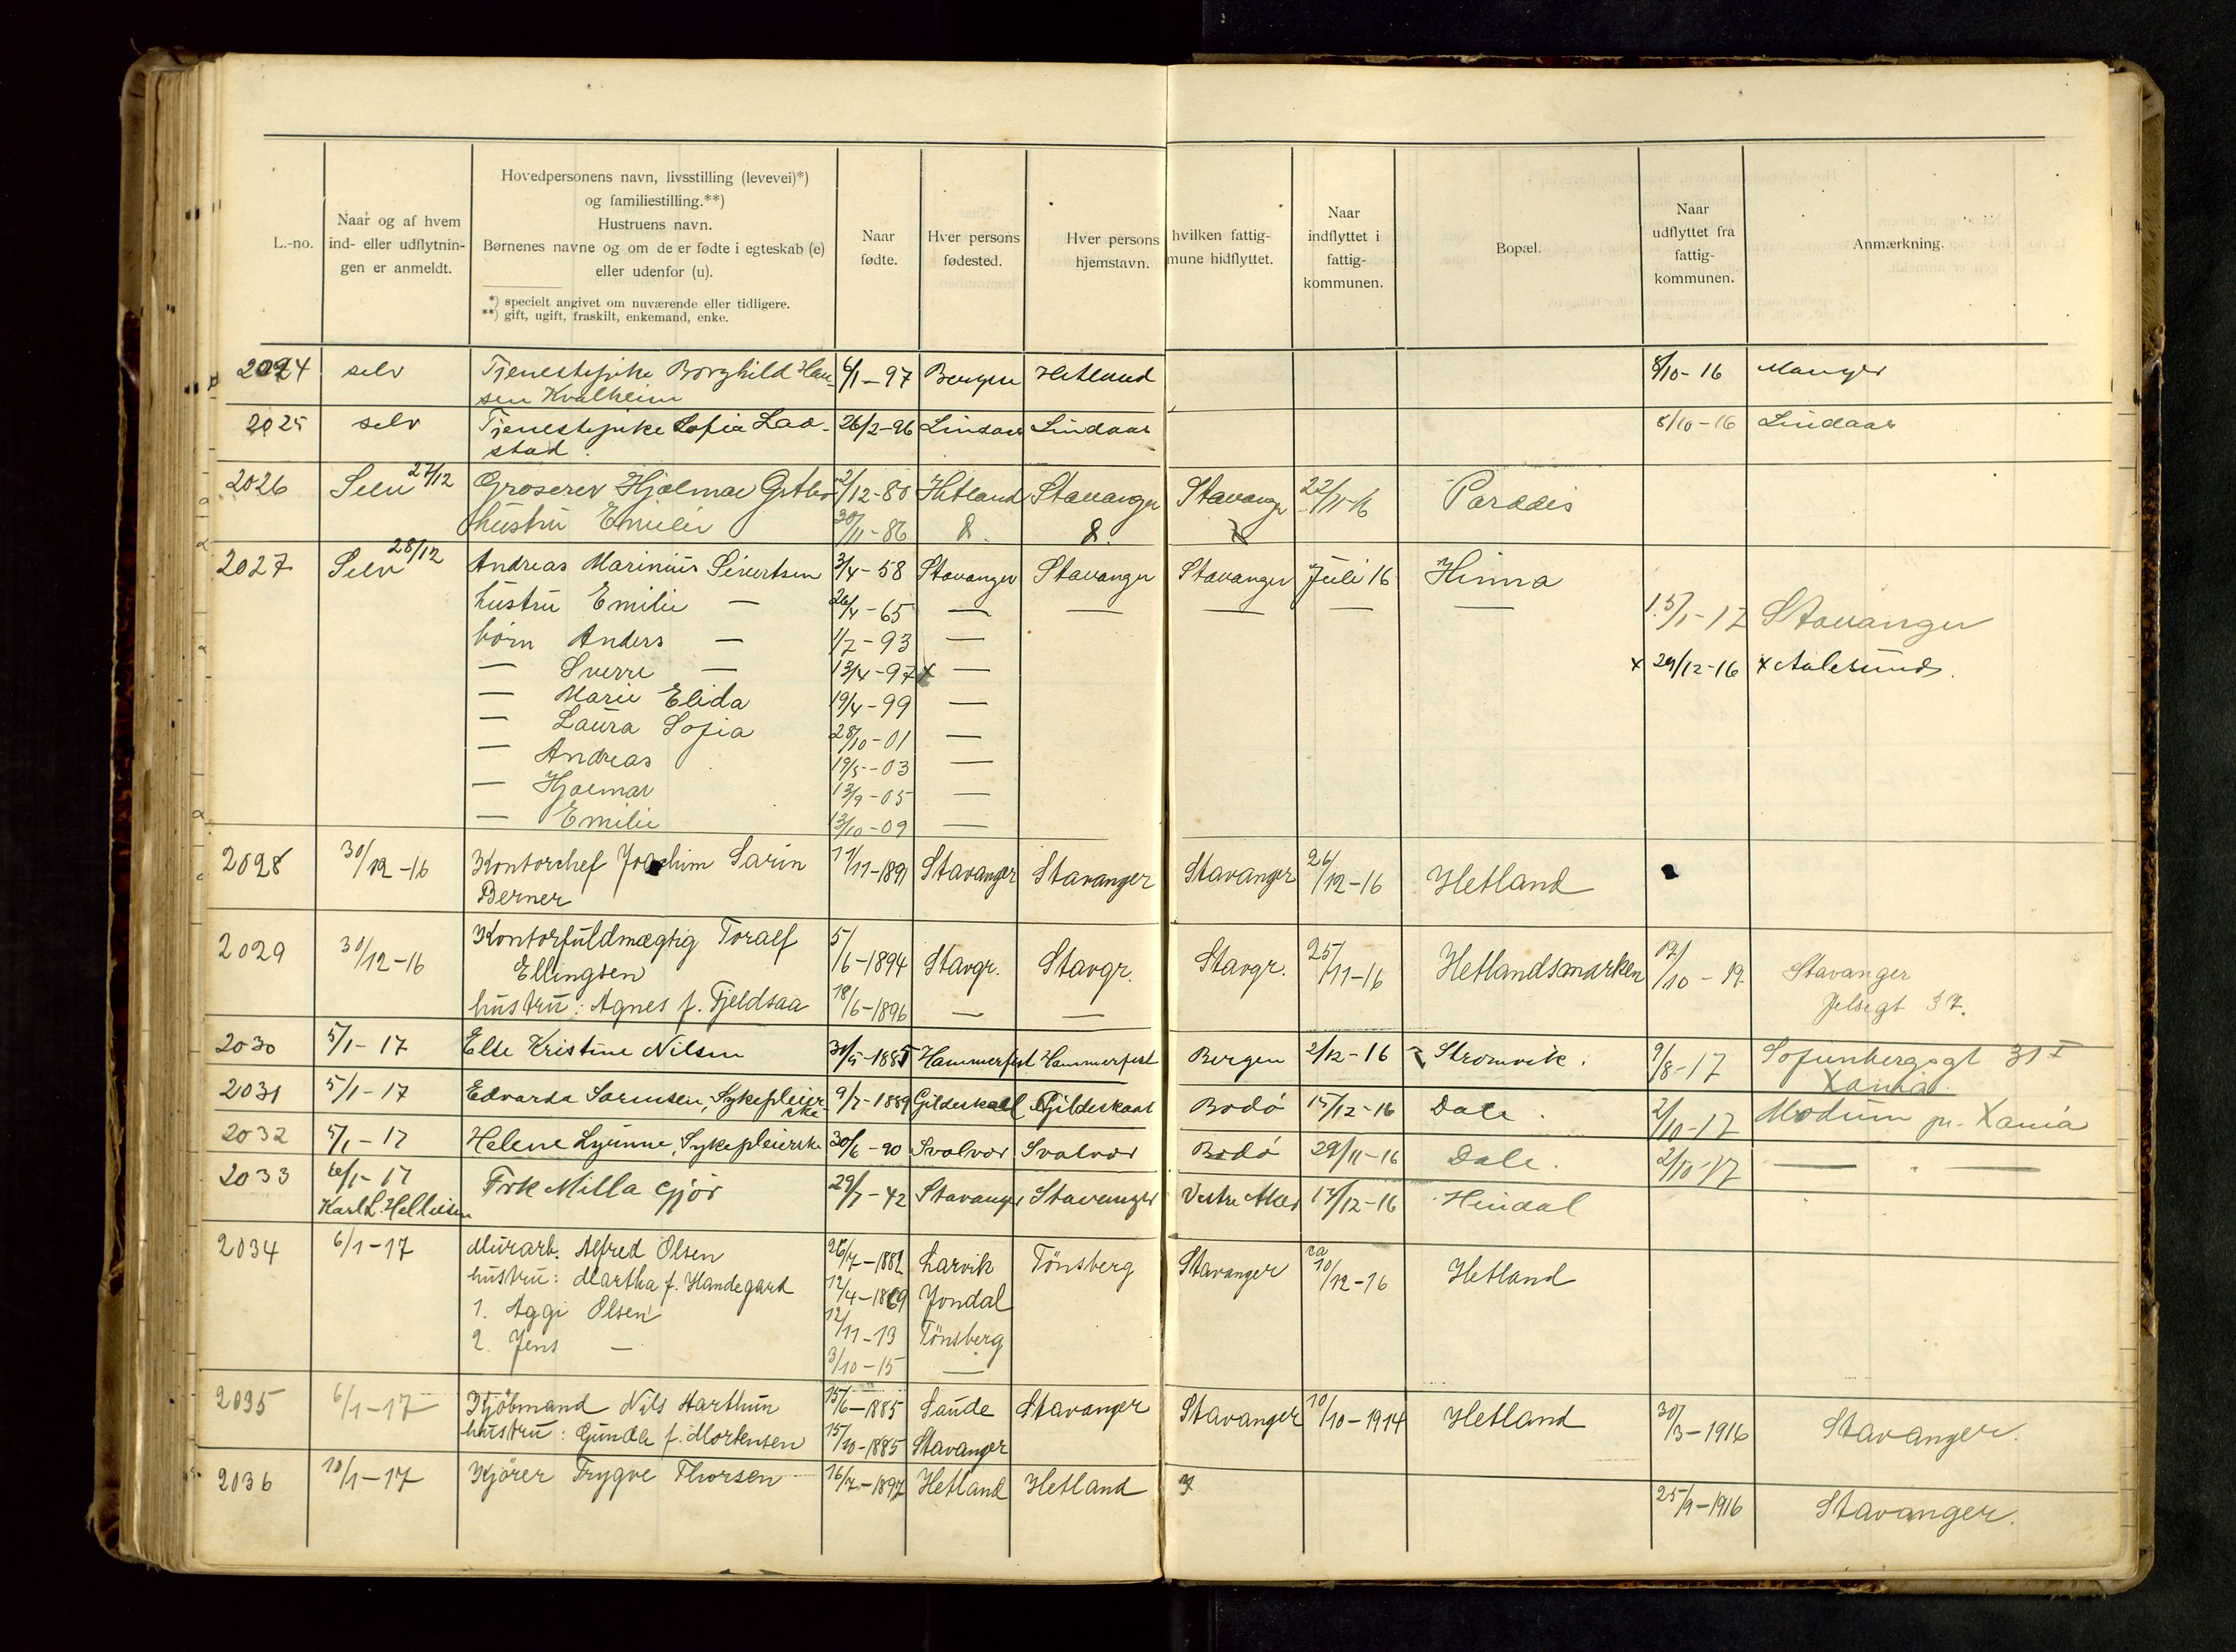 L.-no.
Naar og af hvem
ind- eller udflytnin-
gen er anmeldt.
Hovedpersonens navn, livsstilling (levevei)*)
og familiestilling.**)
Hustruens navn.
Børnenes navne og om de er fødte i egteskab (e)
eller udenfor (u).
*) specielt angivet om nuværende eller tidligere.
**) gift, ugift, fraskilt, enkemand, enke.
Naar
fødte.
Hver persons
fødested.
Hver persons
hjemstavn.
hvilken fattig-
mune hidflyttet.
Naar
indflyttet i
fattig-
kommunen.
Bopæl.
Naar
udflyttet fra
fattig-
kommunen.
Anmærkning.
2024 selv Tjenestepike Borghild Han- 6/1-97 Bergen Hetland 8/10-16 Manger
sen Kvalheim
2025 selv Tjenestepike Sofia Lao- 26/2-96 Lindaas Lindaas 8/10-16 Lindaas
stad.
2026 Selv 27/12 Groserer Hjalmar 2/12-80 Hetland Stavanger Stavanger 22/11-16 Paradis
hustru Emilie 30/11-86
2027 Selv 28/12 Andreas Marinius Sivertsen 3/4-58 Stavanger Stavanger Stavanger Juli 16 Hinna
hustru Emilie — 26/4-65 — — — — — 15/1-17 Stavanger
børn Anders — 1/7-93 —
— Sverre — 13/4-97 x — x 29/12-16 x Aalesund.
— Marie Elida 19/4-99 —
— Laura Sofia 28/10-01 —
— Andreas 19/5-03 —
— Hjalmar 13/9-05 —
— Emilie 13/10-09 —
2028 30/12-16 Kontorchef Joachim Sarin 11/11-1891 Stavanger Stavanger Stavanger 26/12-16 Hetland
Berner
2029 30/12-16 Kontorfuldmægtig Toralf 5/6-1894 Stavgr. Stavgr. Stavgr. 25/11-16 Hetlandsmarken /10-19 Stavanger
Ellingsen
hustru: Agnes f. Fjeldsaa 18/6-1896 — — Jelsegt 37.
2030 5/1-17 Else Kristine Nilsen 30/5-1885 Hammerfest Hammerfest Bergen 2/12-16 Strømvik. 9/8-17 Sofienbergsgt 31 I
Xania.
2031 5/1-17 Edvarda Sørensen, Sykepleier- 9/7-1889 Gildeskaal Gildeskaal Bodø 15/12-16 Dale. 2/10-17 Modum pr. Xania
ske
2032 5/1-17 Helene Lyunne, Sykepleierske 30/6-90 Svolvær Svolvær Bodø 29/11-16 Dale. 2/10-17 — " —
2033 6/1-17 Frk Milla Gjør 29/7-42 Stavanger Stavanger Vestre Aker 14/12-16 Hindal
Karl L. Helliesen
2034 6/1-17 Murarb. Alfred Olsen 26/7-1882 Larvik Tönsberg Stavanger ca 10/12-16 Hetland
hustru: Martha f. Handegard 12/4-1869 Jondal
1. Aggi Olsen 12/11-13 Tönsberg
2. Jens — 3/10-15 —
2035 6/1-17 Kjöbmand Nils Harthun 15/6-1885 Saude Stavanger Stavanger 10/10-1914 Hetland 30/3-1916 Stavanger.
hustru: Gunda f. Mortensen 15/10-1885 Stavanger
2036 10/1-17 Kjörer Trygve Thorsen 16/7-1897 Hetland Hetland 25/9-1916 Stavanger.